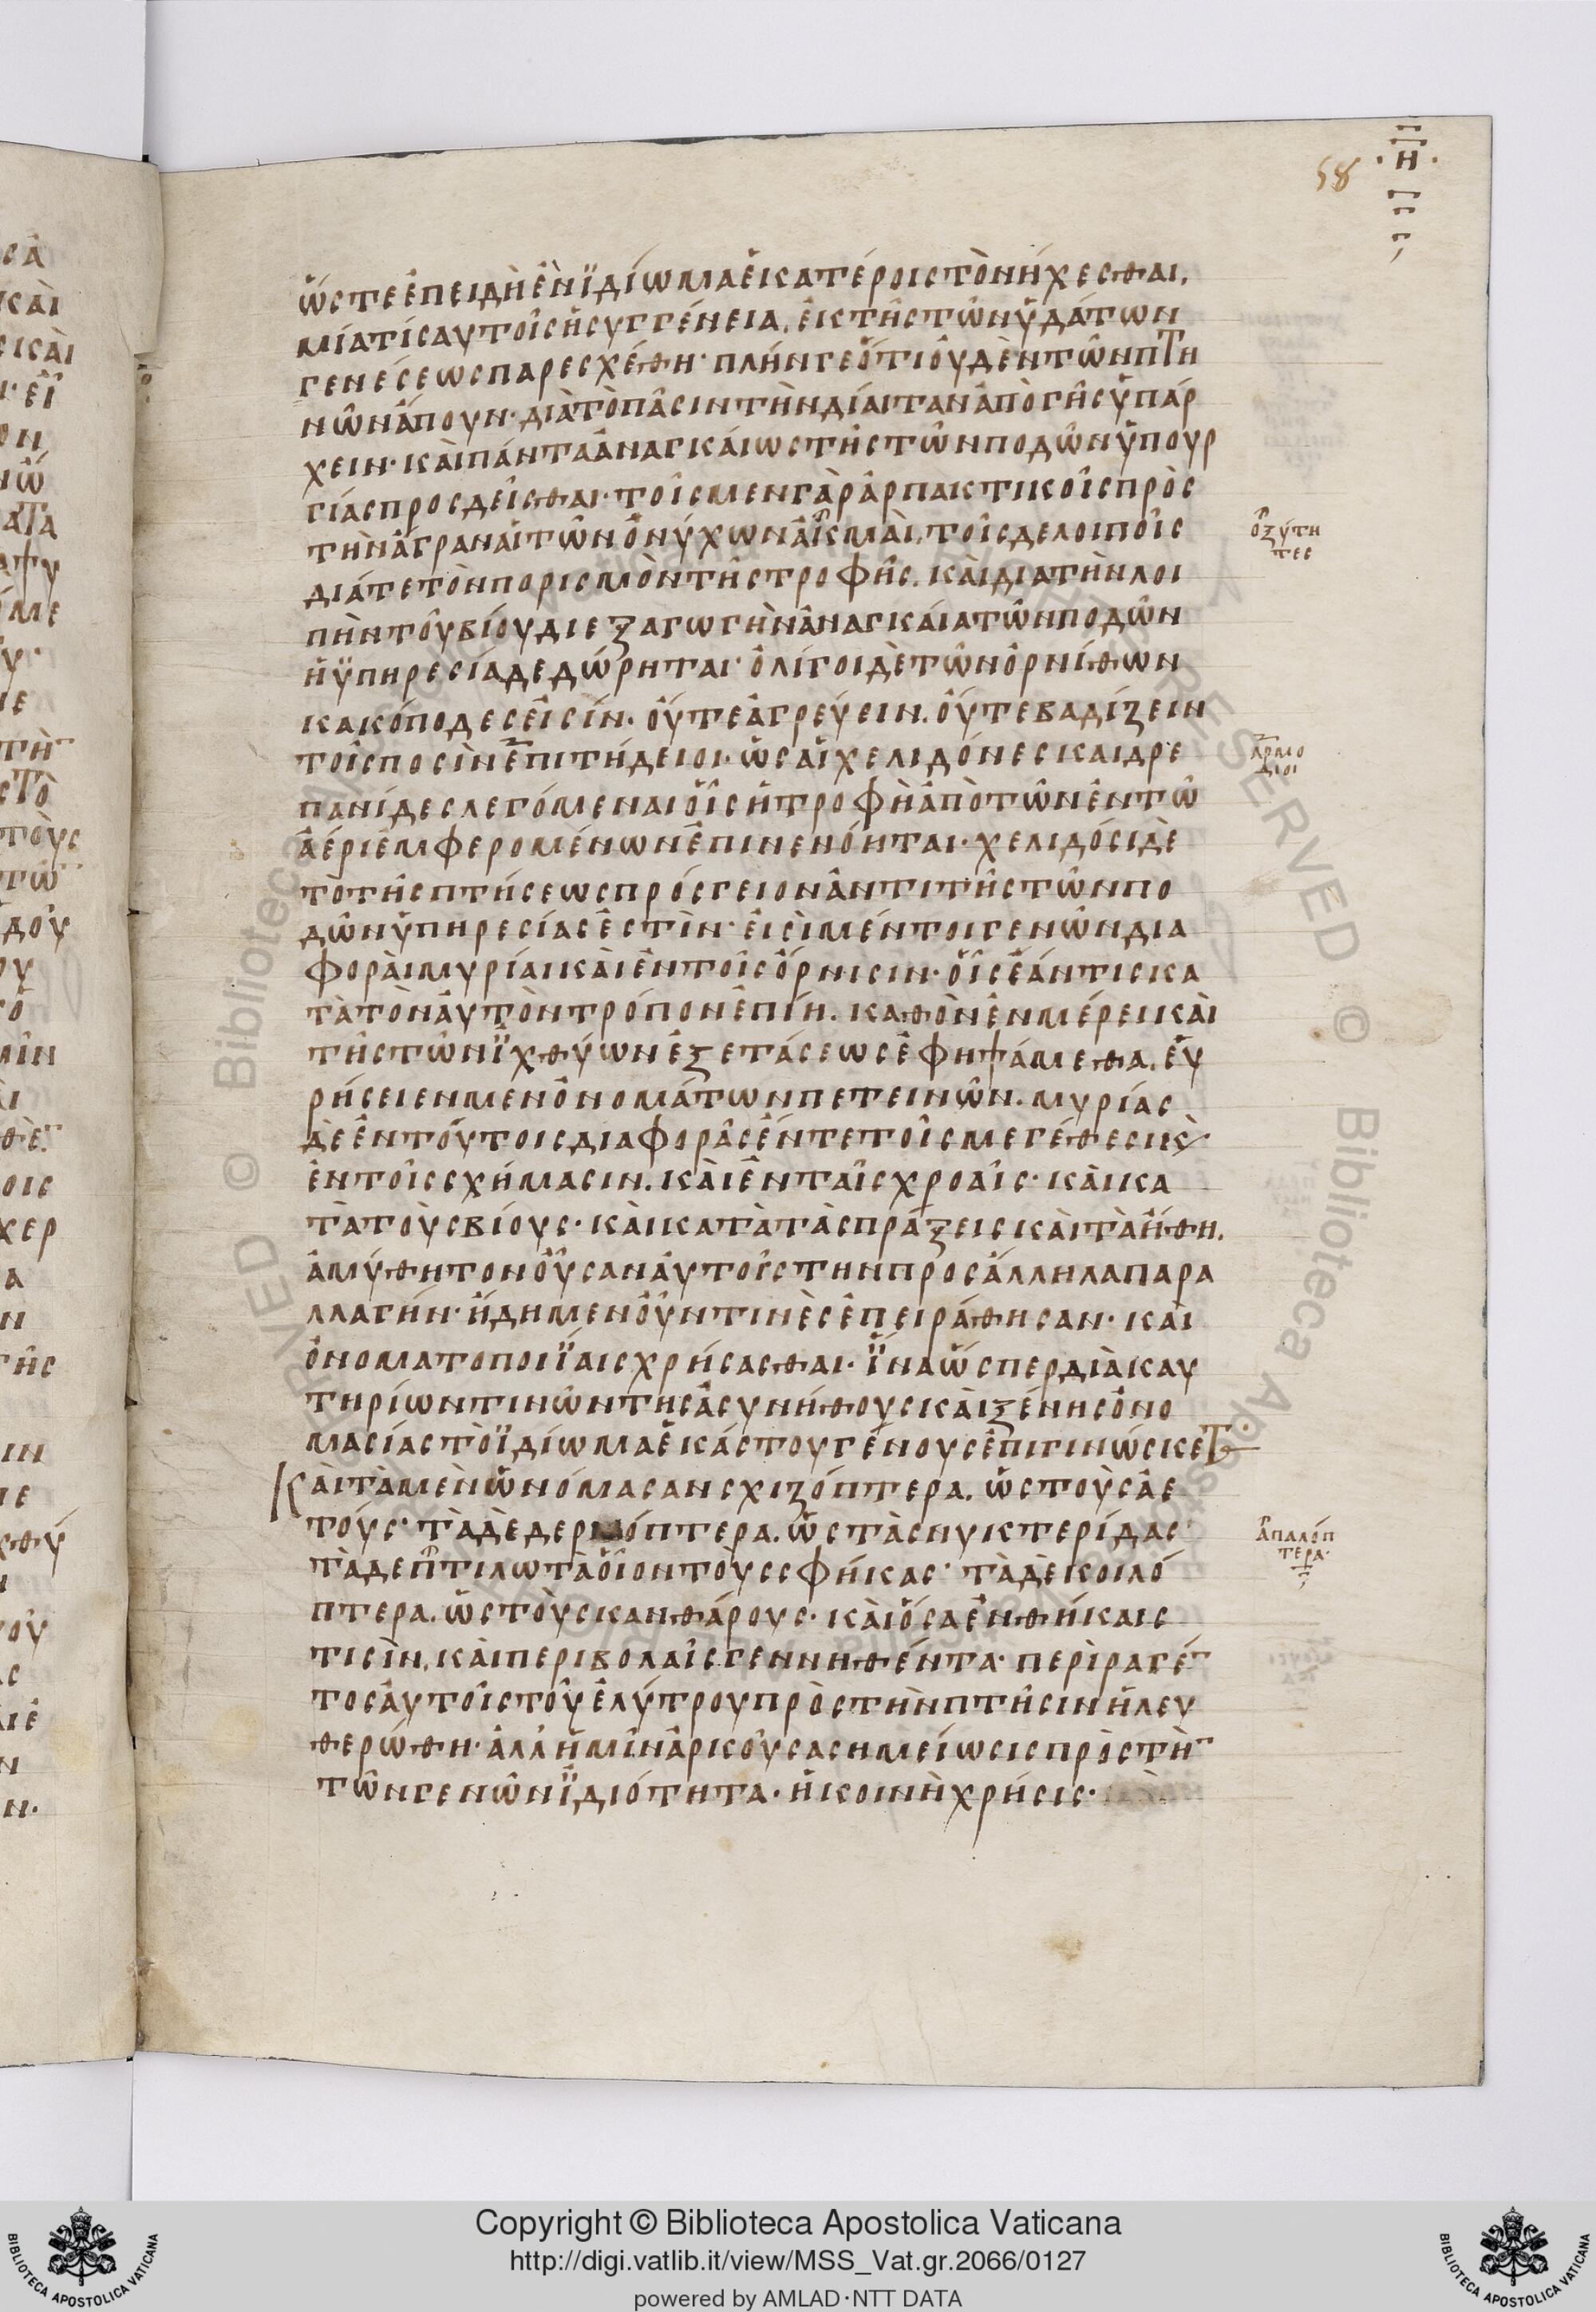 58
· Η ·
ὥστε ἐπειδὴ ἓν ἰδίωμα ἑκατέροις τὸ νήχεσθαι.
μία τίς αυτοῖς ἡ συγγένεια. ἐκ τῆς τῶν ὑδάτων
γενέσεως παρεσχέθη· πλήν γε ὅτι οὐδὲν τῶν πτη
νῶν ἄπουν· διὰ τὸ πᾶσιν τὴν δίαιταν ἀπὸ γῆς ὑπάρ
χειν· καὶ πάντα ἀναγκαίως τῆς τῶν ποδῶν ὑπουρ
γίας προσδεῖσθαι· τοῖς μεν γὰρ ἁρπακτικοῖς πρὸς
τὴν ἄγραν αἱ τῶν ὀνύχων ἀκμαὶ, τοῖς δε λοιποῖς
ὀξύτη
τες
διά τε τὸν πορισμὸν τῆς τροφῆς. καὶ δια τὴν λοι
πὴν τοῦ βίου διεξαγωγὴν ἀναγκαία τῶν ποδῶν
ἡ ὑπηρεσία δεδώρηται· ὀλίγοι δὲ τῶν ὀρνίθων
κακόποδες εἰσίν. οὔτε ἀγρεύειν. οὔτε βαδίζειν
τοῖς ποσὶν ἐπιτήδειοι. ὡς αἱ χελιδόνες και δρε
ἁρμό
διοι
πανίδες λεγόμεναι οἷς ἡ τροφὴ ἀπὸ τῶν ἐν τῶ
ἀέρι ἐμφερομένων ἐπινενόηται· χελιδόσι δὲ
τὸ τῆς πτήσεως πρόσγειον ἀντι τῆς τῶν πο
δῶν ὑπηρεσίας ἐστὶν· εἰσὶ μέντοι γενῶν δια
φοραὶ μυρίαι καὶ ἐν τοῖς ὄρνισιν· οἷς ἐάν τις κα
τὰ τὸν αὐτὸν τρόπον ἐπίη. καθ ὃν ἐν μέρει καὶ
τῆς τῶν ἰχθύων ἐξετάσεως ἐφηψάμεθα. εὑ
ρήσει εν μεν ὄνομα τῶν πετεινῶν. μυρίας
δὲ ἐν τούτοις διαφορὰς ἔν τε τοῖς μεγέθεσι κ̀
ἐν τοῖς σχήμασιν. καὶ ἐν ταῖς χροαῖς· καὶ κα
τὰ τοὺς βίους· καὶ κατὰ τὰς πράξεις καὶ τὰ ἤθη.
ἀμύθητον οὖσαν αὐτοῖς την προς ἄλληλα παρα
λλαγήν· ἤδη μεν οὖν τινὲς ἐπειράθησαν· καὶ
ὀνοματοποιΐαις χρήσασθαι· ἵνα ὥσπερ διὰ καυ
τηρίων τινῶν της ἀσυνήθους καὶ ξένης ὀνο
μασίας τὸ ἰδίωμα ἑκάστου γένους ἐπιγινώσκετ
Καὶ τὰ μεν ὠνόμασαν σχιζόπτερα. ὡς τοὺς ἀε
τούς· τὰ δὲ δερμόπτερα. ὡς τὰς νυκτερίδας·
ἁπαλόπ
τερα·
τὰ δε πτιλωτὰ οἷον τοὺς σφήκας· τὰ δὲ κολεό
πτερα. ὡς τοὺς κανθάρους· καὶ ὅσα ἐν θήκαις
τισὶν, καὶ περιβολαῖς γεννηθέντα· περιραγέν
τος αὐτοῖς τοῦ ἐλύτρου πρὸς τὴν πτῆσιν ἠλευ
θερώθη· ἀλλ ἡμῖν ἀρκοῦσα σημείωσις πρὸς τὴν
τῶν γενῶν ἰδιότητα. ἡ κοινὴ χρήσις·
Copyright © Biblioteca Apostolica Vaticana
http://digi.vatlib.it/view/MSS_Vat.gr.2066/0127
powered by AMLAD·NTT DATA